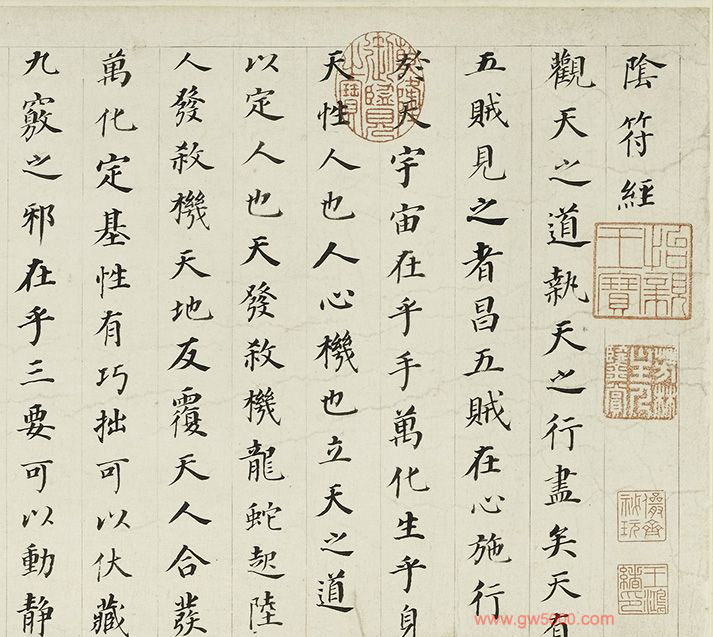 陰符經
觀天之道執天之行盡矣天有
五賊見之者昌五賊在心施行
於天宇宙在乎手萬化生乎身
天性人也人心機也立天之道
以定人也天發殺機龍蛇起陸
人發殺機天地反覆天人合發
萬化定基性有巧拙可以伏藏
九竅之邪在乎三要可以動靜
乾隆御覽之寶
怡親王寶
儼齋秘玩
王鴻緒印